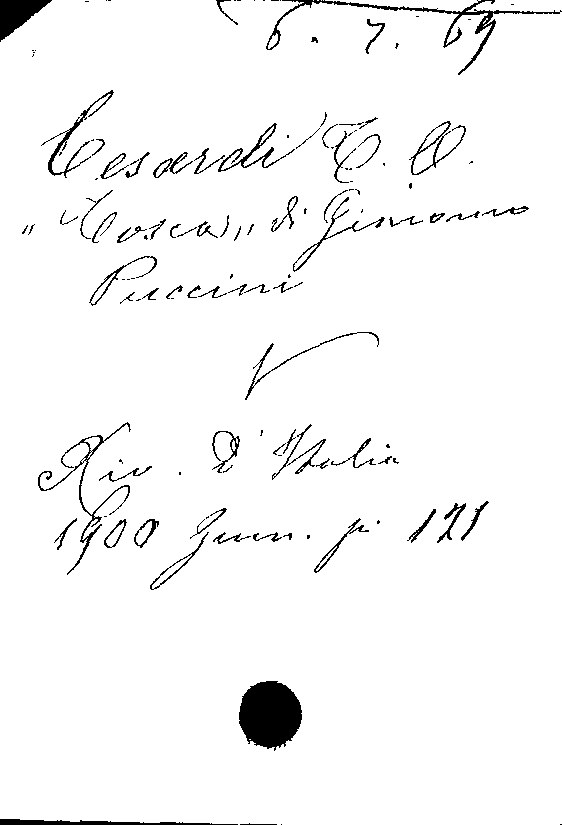 6. 7. 69
Cesardi T. O.
"Tosca" di Giacomo
Puccini
Riv. d'Italia
1900 Genn. p. 121